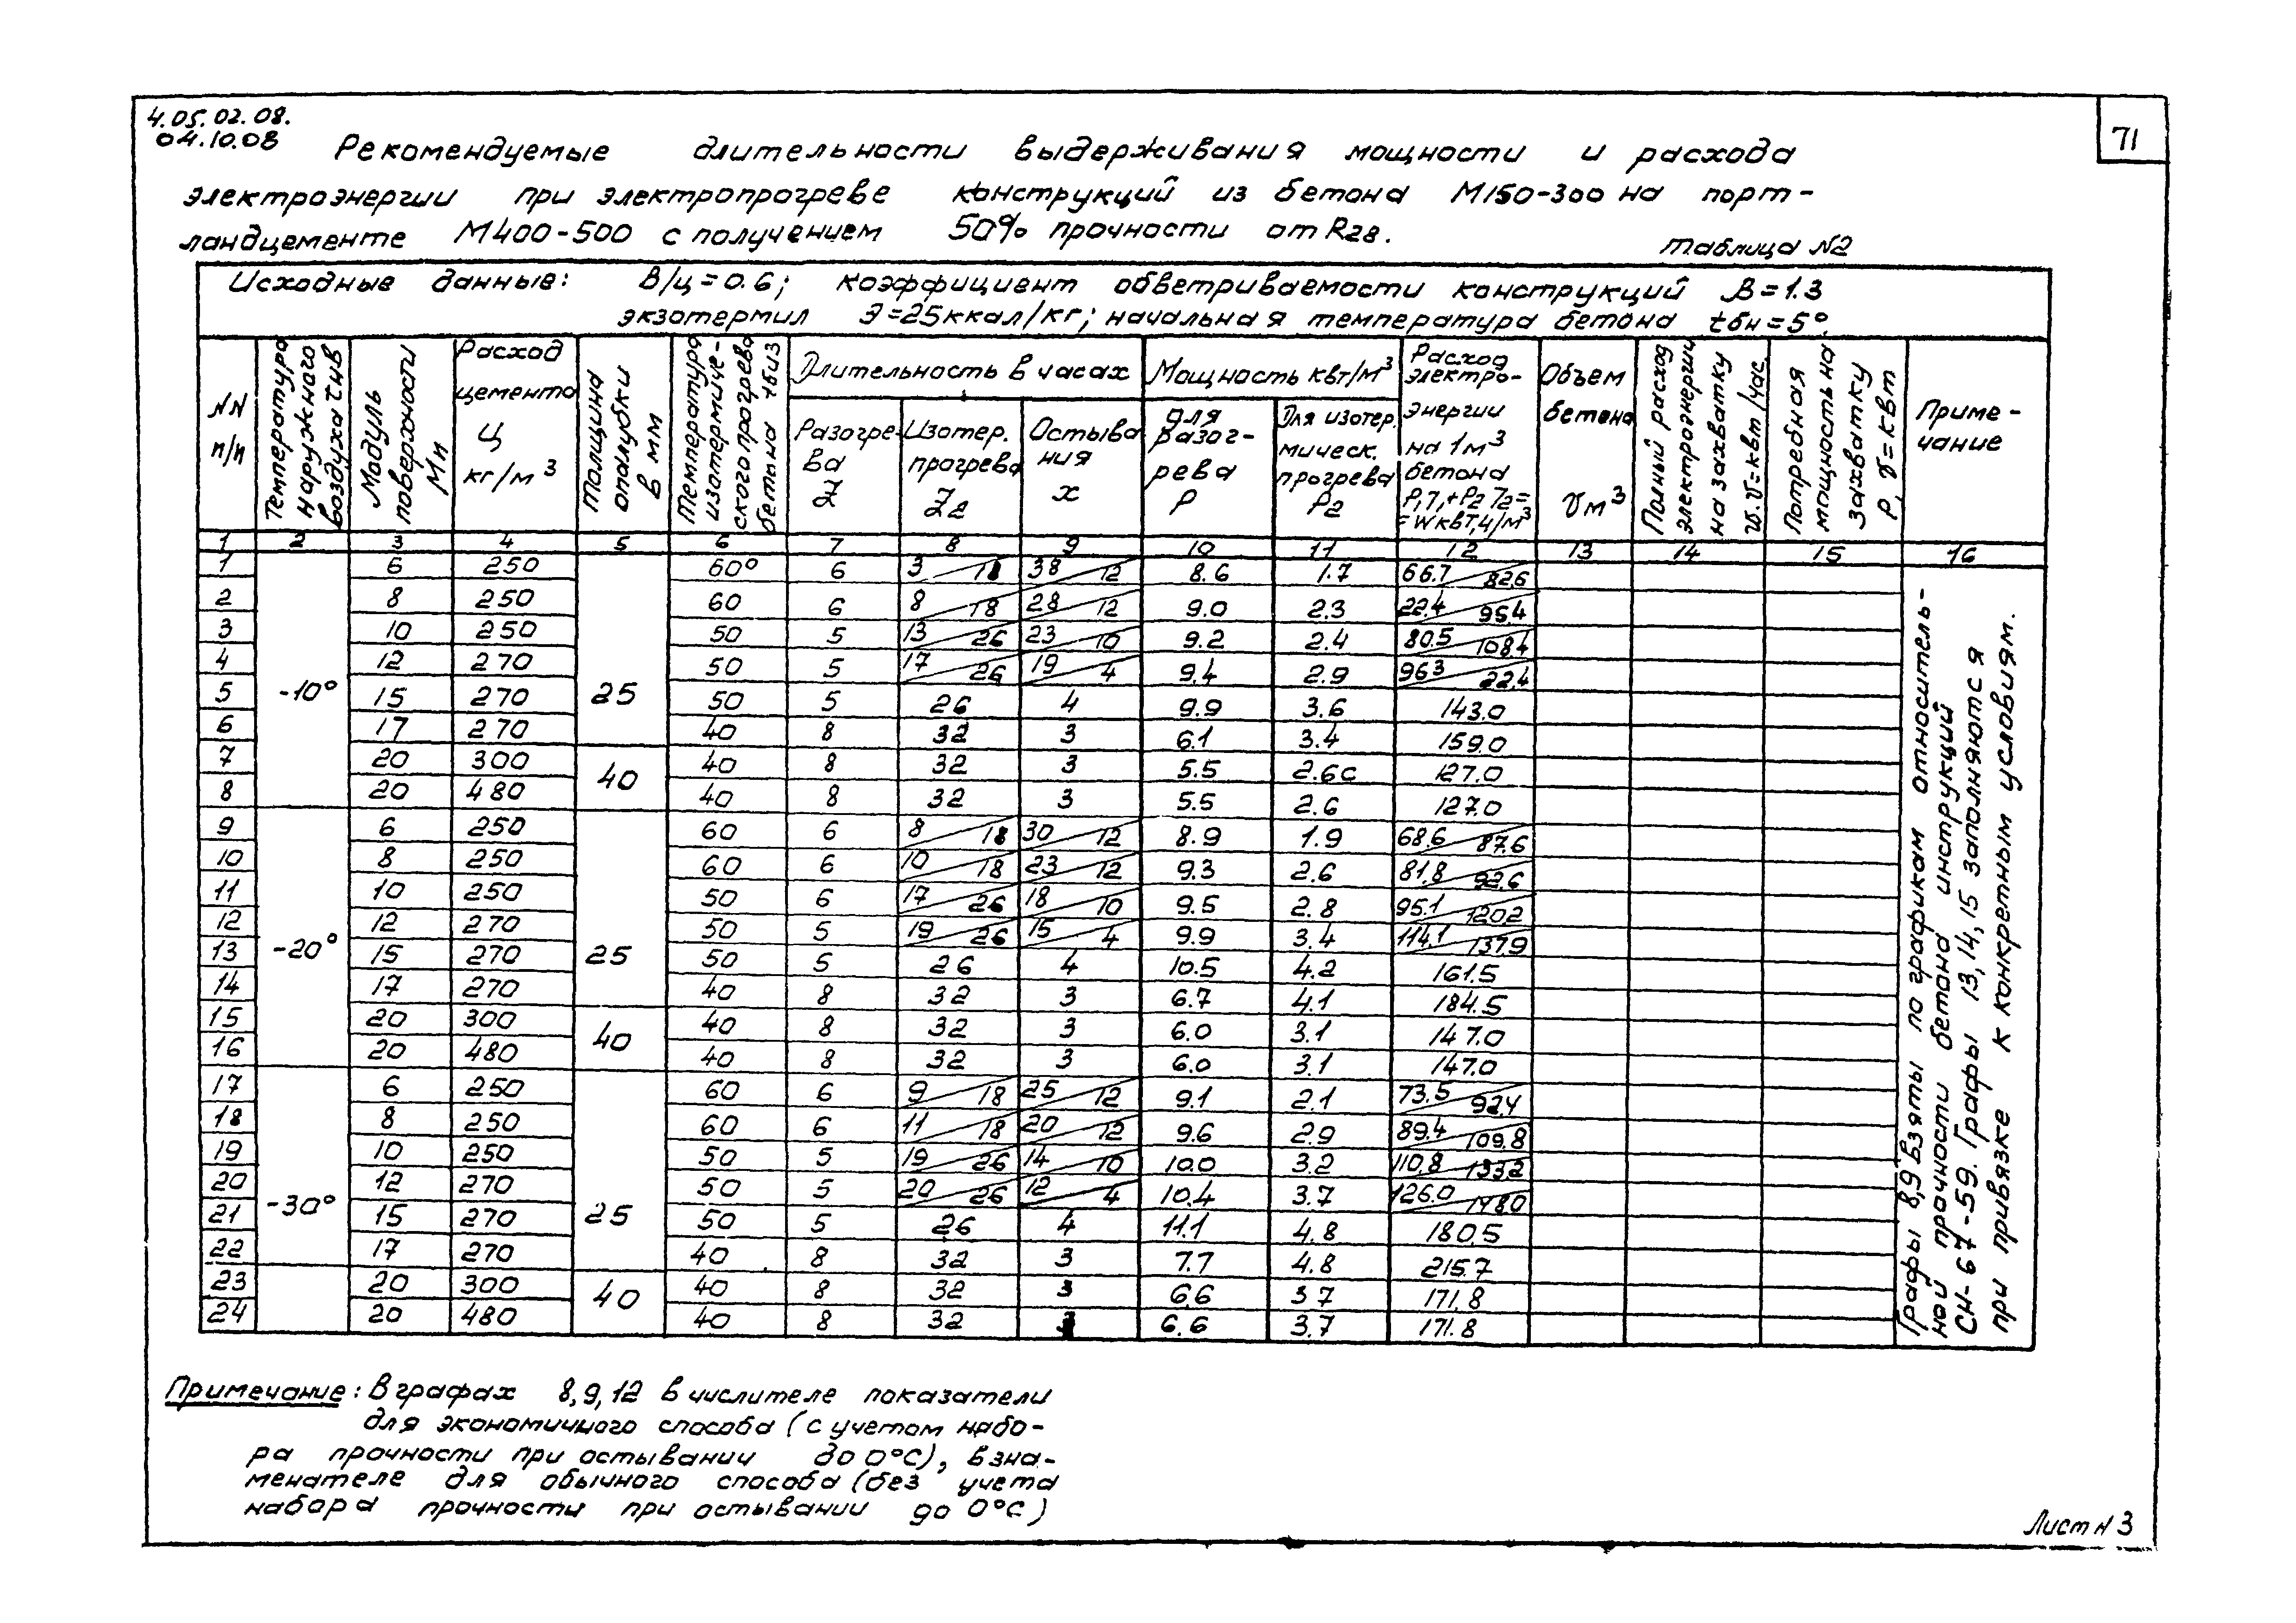 4.05.02.08.
04.10.08
71
Рекомендуемые длительности выдерживания мощности и расхода
электроэнергии при электропрогреве конструкций из бетона М150-300 на порт-
ландцементе М400-500 с получением 50% прочности от R28.
Таблица №2
Исходные данные: В/ц=0.6; коэффициент обветриваемости конструкций β=1.3
экзотермил Э=25ккал/кг; начальная температура бетона tбн=5°.
NN п/п | Температура наружного воздуха tнв | Модуль поверхности Мп | Расход цемента Ц кг/м³ | Толщина опалубки в мм | Температура изотермиче-ского прогрева бетына tбиз | Длительность в часах | Мощность квт/м³ | Расход электро-энергии на 1м³ бетона P,7,+P2 72= =Wквт,ч/м³ | Объем бетона Vм³ | Полный расход электроэнергии на захватку w.V=квт/час. | Потребная мощность на захватку P,V=квт | Приме-чание
Разогре-ва Z | Изотер. прогрева Z2 | Остыва ния x | для разог-рева P | Для изотер. мическ. прогрева P2
1 2 3 4 5 6 7 8 9 10 11 12 13 14 15 16
1 6 250 60° 6 3/18 38/12 8.6 1.7 66.7/82.6
2 8 250 60 6 8/18 28/12 9.0 2.3 22.4/95.4
3 10 250 50 5 13/26 23/10 9.2 2.4 80.5/108.4
4 12 270 50 5 17/26 19/4 9.4 2.9 96.3/22.4
5 -10° 15 270 25 50 5 26 4 9.9 3.6 143.0
6 17 270 40 8 32 3 6.1 3.4 159.0
7 20 300 40 40 8 32 3 5.5 2.6с 127.0
8 20 480 40 8 32 3 5.5 2.6 127.0
9 6 250 60 6 8/18 30/12 8.9 1.9 68.6/87.6
10 8 250 60 6 10/18 23/12 9.3 2.6 81.8/92.6
11 10 250 50 6 17/26 18/10 9.5 2.8 95.1/120.2
12 12 270 50 5 19/26 15/4 9.9 3.4 114.1/137.9
13 -20° 15 270 25 50 5 26 4 10.5 4.2 161.5
14 17 270 40 8 32 3 6.7 4.1 184.5
15 20 300 40 40 8 32 3 6.0 3.1 147.0
16 20 480 40 8 32 3 6.0 3.1 147.0
17 6 250 60 6 9/18 25/12 9.1 2.1 73.5/92.4
18 8 250 60 6 11/18 20/12 9.6 2.9 89.4/109.8
19 10 250 50 5 19/26 14/10 10.0 3.2 110.8/133.2
20 12 270 50 5 20/26 12/4 10.4 3.7 126.0/148.0
21 -30° 15 270 25 50 5 26 4 11.1 4.8 180.5
22 17 270 40 8 32 3 7.7 4.8 215.7
23 20 300 40 40 8 32 3 6.6 3 7 171.8
24 20 480 40 8 32 3 6.6 3.7 171.8
Графы 8,9 взяты по графикам относитель-
ной прочности бетона инструкций
СН-67-59. Графы 13, 14, 15 заполняются
при привязке к конкретным условиям.
Примечание: В графах 8,9,12 в числителе показатели
для экономичного способа (с учетом набо-
ра прочности при остывании до 0°С), в зна-
менателе для обычного способа (без учета
набора прочности при остывании до 0°С)
Лист N 3